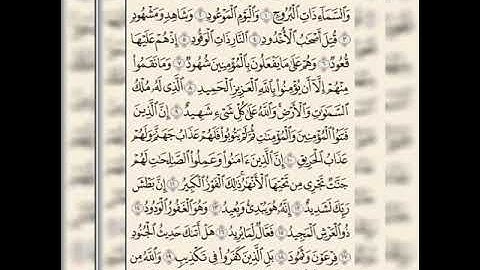 وَالسَّمَاءِ ذَاتِ الْبُرُوجِ ١ وَالْيَوْمِ الْمَوْعُودِ ٢ وَشَاهِدٍ وَمَشْهُودٍ
٣ قُتِلَ أَصْحَابُ الْأُخْدُودِ ٤ النَّارِ ذَاتِ الْوَقُودِ ٥ إِذْ هُمْ عَلَيْهَا
قُعُودٌ ٦ وَهُمْ عَلَىٰ مَا يَفْعَلُونَ بِالْمُؤْمِنِينَ شُهُودٌ ٧ وَمَا نَقَمُوا
مِنْهُمْ إِلَّا أَن يُؤْمِنُوا بِاللَّهِ الْعَزِيزِ الْحَمِيدِ ٨ الَّذِي لَهُ مُلْكُ
السَّمَٰوَٰتِ وَالْأَرْضِ وَاللَّهُ عَلَىٰ كُلِّ شَيْءٍ شَهِيدٌ ٩ إِنَّ الَّذِينَ
فَتَنُوا الْمُؤْمِنِينَ وَالْمُؤْمِنَٰتِ ثُمَّ لَمْ يَتُوبُوا فَلَهُمْ عَذَابُ جَهَنَّمَ وَلَهُمْ
عَذَابُ الْحَرِيقِ ١٠ إِنَّ الَّذِينَ ءَامَنُوا وَعَمِلُوا الصَّٰلِحَٰتِ لَهُمْ
جَنَّٰتٌ تَجْرِي مِن تَحْتِهَا الْأَنْهَٰرُ ذَٰلِكَ الْفَوْزُ الْكَبِيرُ ١١ إِنَّ بَطْشَ
رَبِّكَ لَشَدِيدٌ ١٢ إِنَّهُ هُوَ يُبْدِئُ وَيُعِيدُ ١٣ وَهُوَ الْغَفُورُ الْوَدُودُ ١٤
ذُو الْعَرْشِ الْمَجِيدُ ١٥ فَعَّالٌ لِّمَا يُرِيدُ ١٦ هَلْ أَتَىٰكَ حَدِيثُ الْجُنُودِ
١٧ فِرْعَوْنَ وَثَمُودَ ١٨ بَلِ الَّذِينَ كَفَرُوا فِي تَكْذِيبٍ ١٩ وَاللَّهُ مِن